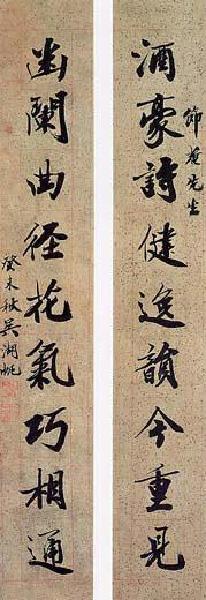 節庵先生
酒豪詩健逸韻今重見
幽闌曲徑花氣巧相通
癸未秋吳湖帆